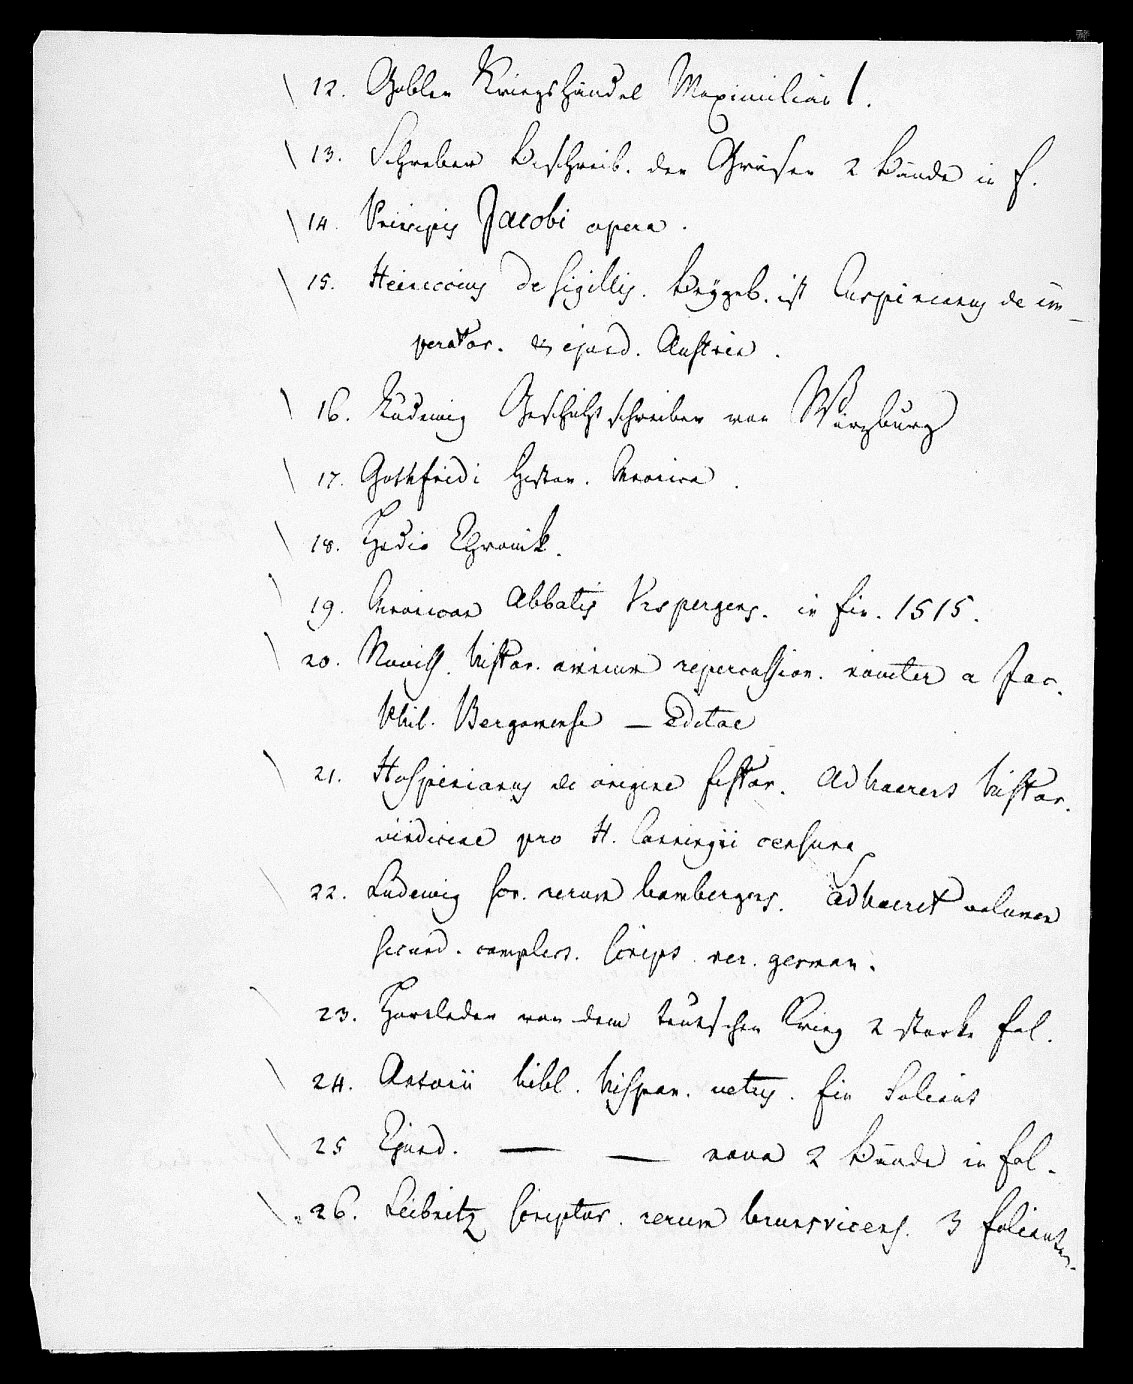 12. Gobler Kriegshändel Maximilian I.
13. Schreber Beschreib. der Gräser 2 Bände in f.
14. Principis Jacobi opera.
15. Heineccius de sigillis. Beygeb. ist Cuspinianus de im-
perator. & ejusd. Austria.
16. Ludewig Geschichtschreiber von Würzburg
17. Gothfridi histor. Cronica.
18. Hedio Chronik.
19. Cronicon Abbatis Urspergens. in fin. 1515.
20. Noviss. histor. omnium repercussion. noviter a Jac.
Phil. Bergomense — Editae
21. Hospinianus de origine festor. Adhaerens histor.
vindiciae pro H. Conringii censura
22. Ludewig scr. rerum bambergens. Adhaeret volumen
secund. complect. Scrips. rer. german.
23. Hortleder von dem teutschen Krieg 2 starke fol.
24. Antonii bibl. hispan. vetus. Ein Foliant
25 Ejusd. — — nova 2 Bände in fol.
26. Leibnitz Scriptor. rerum brunsvicens. 3 folianten.